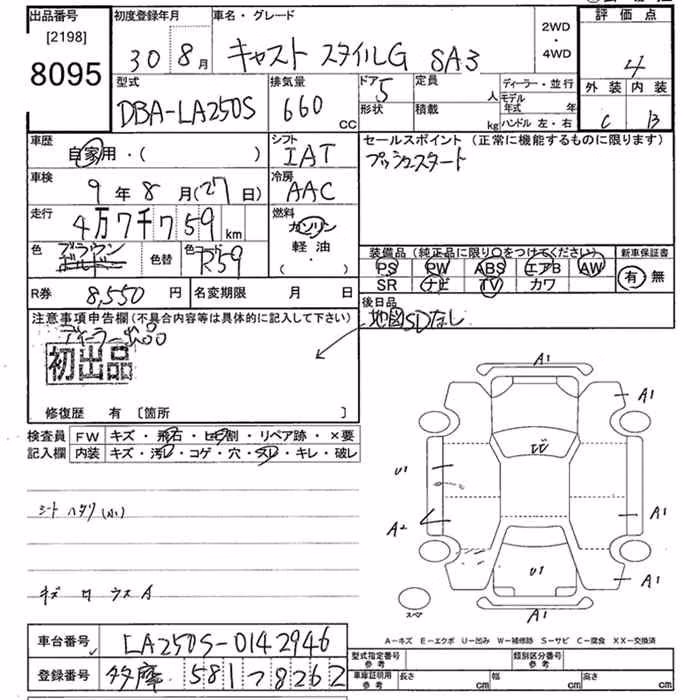 出品番号 初度登録年月 車名・グレード 2WD・4WD 評価点
[2198]
8095 30 8月 キャスト スタイルG SA3 4
型式 排気量 ドア 定員 ディーラー・並行 外装 内装
DBA-LA250S 660 CC 5 人 モデル年式 年 C B
形状 積載 kg ハンドル 左・右
車歴 シフト セールスポイント (正常に機能するものに限ります)
自家用・( ) IAT プッシュスタート
車検 9年8月(27日) 冷房 AAC
走行 4万7千759km 燃料 ガソリン 軽油 ( ・ )
色 ブラウン 色替 色コード R59
装備品 (純正品に限り○をつけてください。) 新車保証書
PS PW ABS エアB AW 有 無
SR ナビ TV カワ
R券 8,550円 名変期限 月 日 後日品
地図SDなし
注意事項申告欄 (不具合内容等は具体的に記入して下さい)
ディーラー出品
初出品
修復歴 有 [箇所 ]
検査員記入欄 FW キズ・飛石・ヒビ割・リペア跡・×要
内装 キズ・汚レ・コゲ・穴・スレ・キレ・破レ
A1
A1 A1
U1
A2 A1
U1 A1
A1
スペア
シートハタリ(小)
キズ ワ ウス A
A−キズ E−エクボ U−凹み W−補修跡 S−サビ C−腐食 XX−交換済
車台番号 LA250S-0142946
型式指定番号 参考 類別区分番号 参考
登録番号 多摩 581 ア 8262
車庫証明用 参考 長さ cm 幅 cm 高さ cm